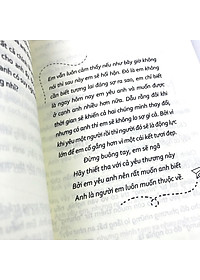 Em vẫn luôn cảm thấy nếu như bây giờ không
nói thì sau này em sẽ hối hận. Đó là em không
cần biết tương lai đáng sợ ra sao, em chỉ biết
là ngay hôm nay em yêu anh và muốn được
ở cạnh anh nhiều hơn nữa. Dẫu rằng đôi khi
thời gian sẽ khiến cả hai chúng mình thay đổi,
nhưng có anh thì em sẽ không lo sợ gì cả. Bởi vì
khi yêu một người rồi thì người đó sẽ là động lực
lớn để em cố gắng hơn vì một cái kết tươi đẹp.
Đừng buông tay, em sẽ ngã
Hãy thiết tha với cả yêu thương này
Bởi em yêu anh nên rất muốn anh biết
Anh là người em luôn muốn thuộc về.